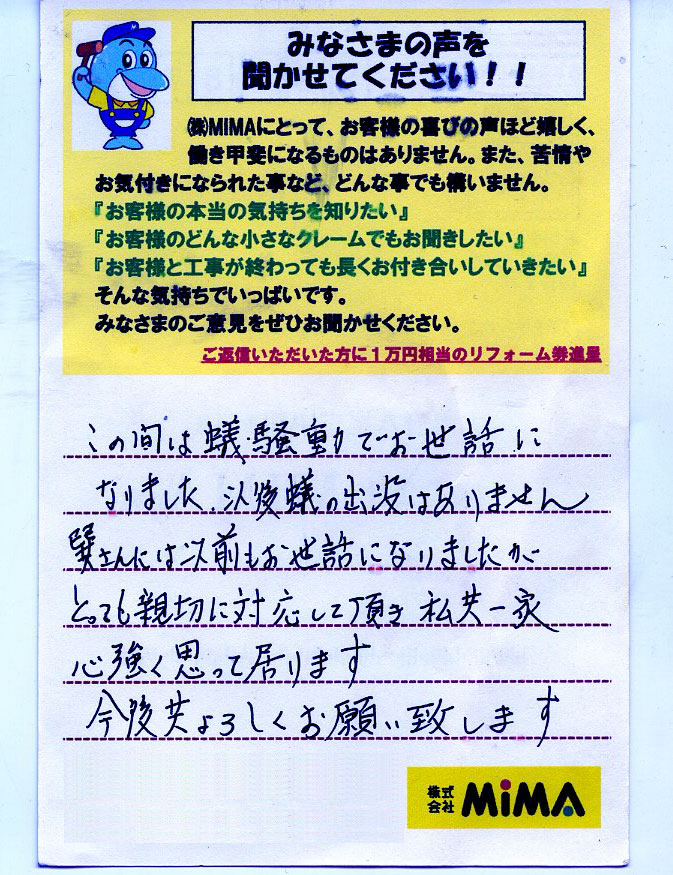 みなさまの声を
聞かせてください！！
㈱MIMAにとって、お客様の喜びの声ほど嬉しく、
働き甲斐になるものはありません。また、苦情や
お気付きになられた事など、どんな事でも構いません。
『お客様の本当の気持ちを知りたい』
『お客様のどんな小さなクレームでもお聞きしたい』
『お客様と工事が終わっても長くお付き合いしていきたい』
そんな気持ちでいっぱいです。
みなさまのご意見をぜひお聞かせください。
ご返信いただいた方に１万円相当のリフォーム券進呈
この間は蟻騒動でお世話に
なりました、以後蟻の出没はありません
巽さんには以前もお世話になりましたが
とっても親切に対応して頂き私共一家
心強く思って居ります
今後共よろしくお願い致します
株式会社 MiMA